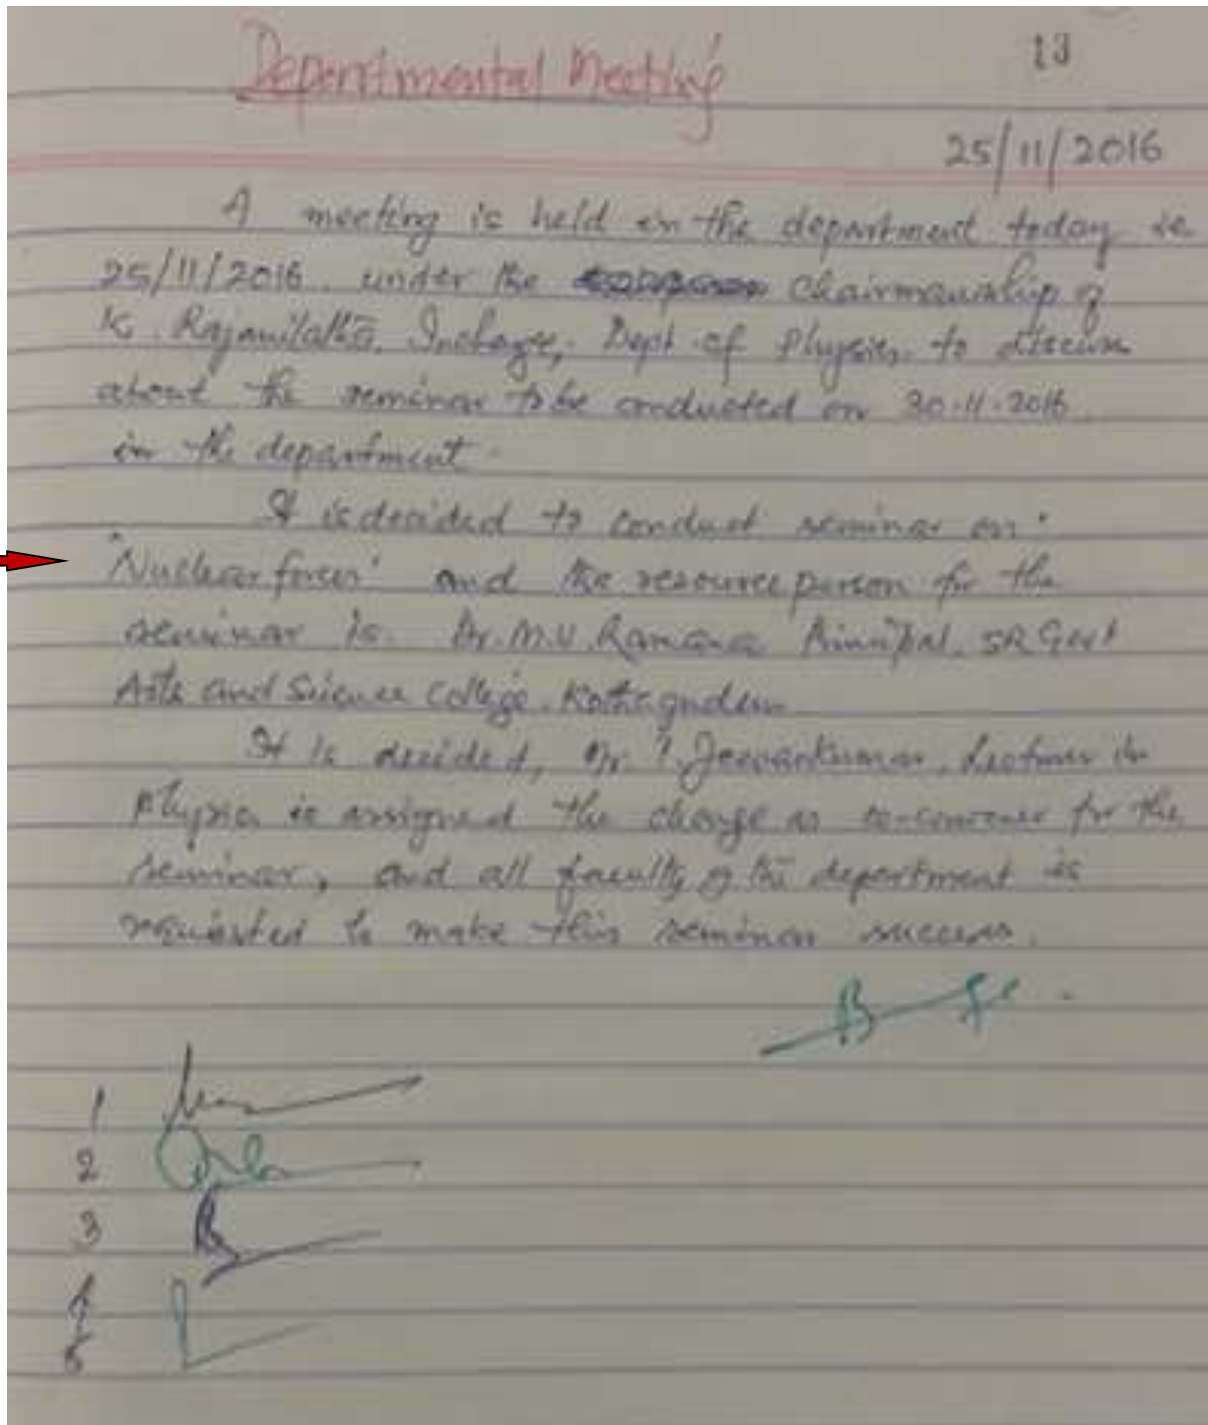 Departmental Meeting
13
25/11/2016
A meeting is held in the department today ie
25/11/2016. under the Chairmanship of
K. Rajanilatha, Incharge, Dept of Physics, to discuss
about the seminar to be conducted on 30-11-2016
in the department.
It is decided to conduct seminar on
'Nuclear forces' and the resource person for the
seminar is. Dr. M.V. Ramana Principal, SR Govt
Arts and Science College. Kothagudem
It is decided, Jeevankumar, Lecturer in
Physics is assigned the charge as co-convener for the
seminar, and all faculty of the department is
requested to make this seminar success.
1
2
3
4
5